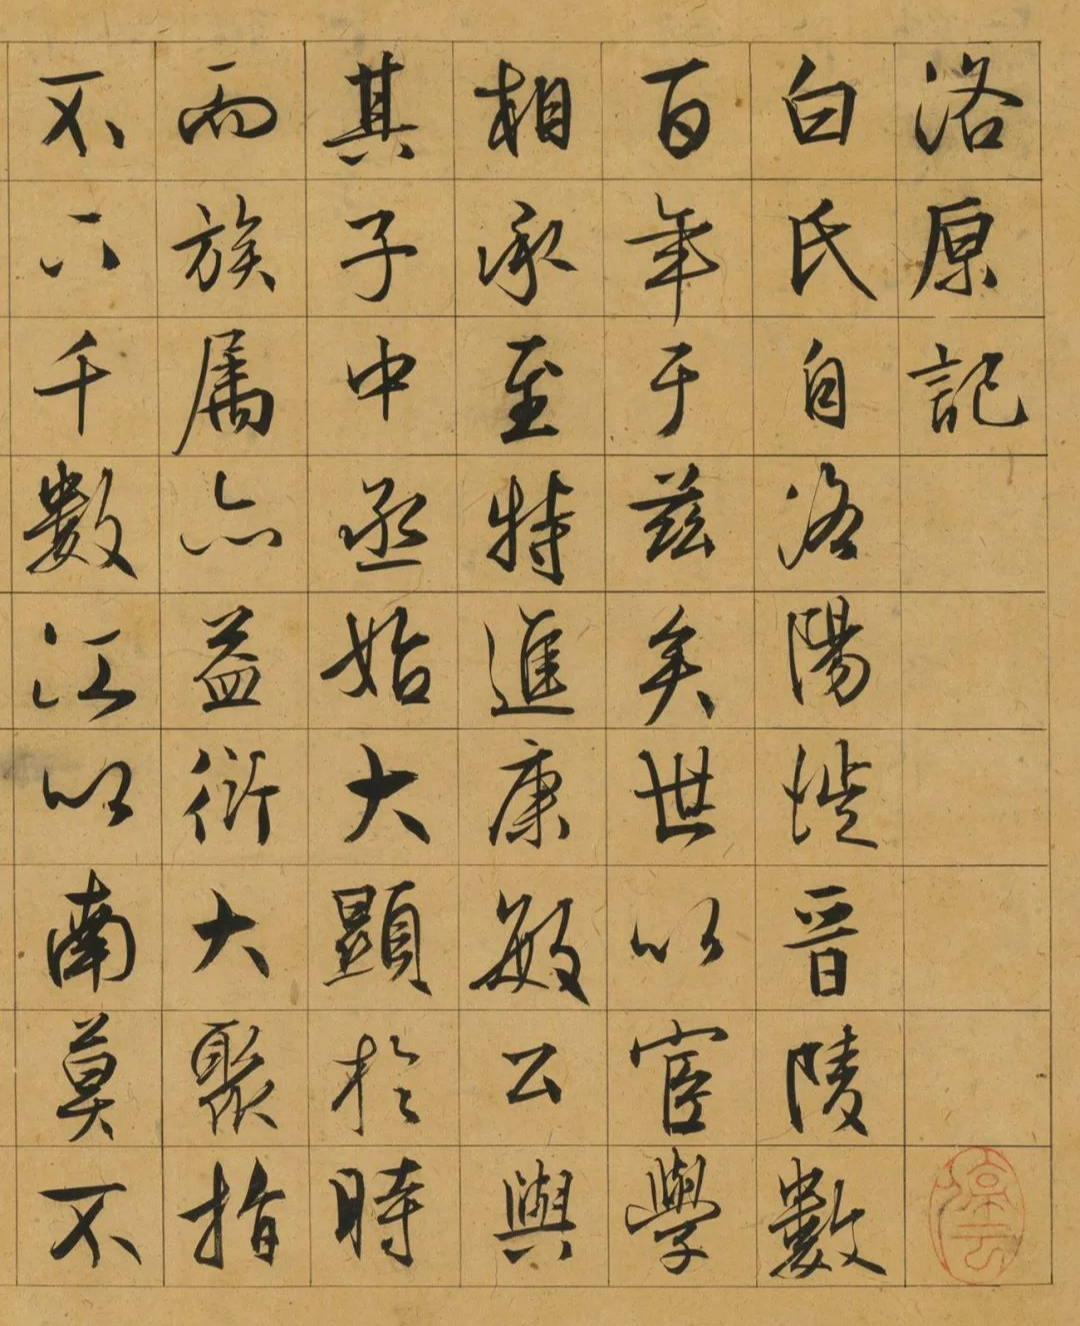 洛原記
白氏自洛陽徙晉陵數
百年于茲矣世以宦學
相承至特進康敏公與
其子中丞始大顯於時
而族属亦益衍大聚指
不下千數江以南莫不
停雲